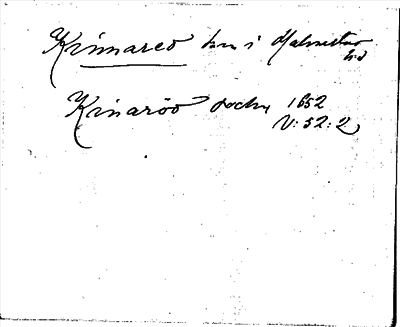 Kinnared sn i Halmstad hd
Kinaröö sochn 1652
V: 52: 2